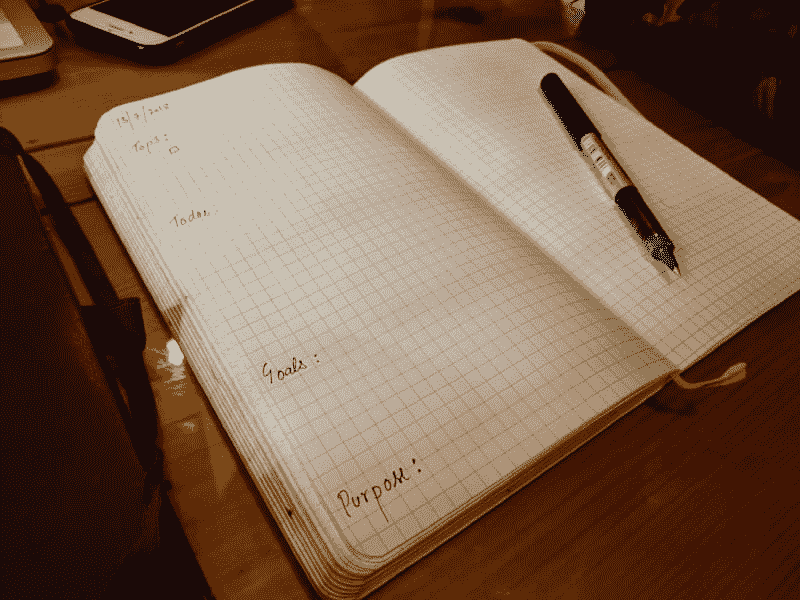 13/7/2018
Top3:
Todos:
Goals:
Purpose: